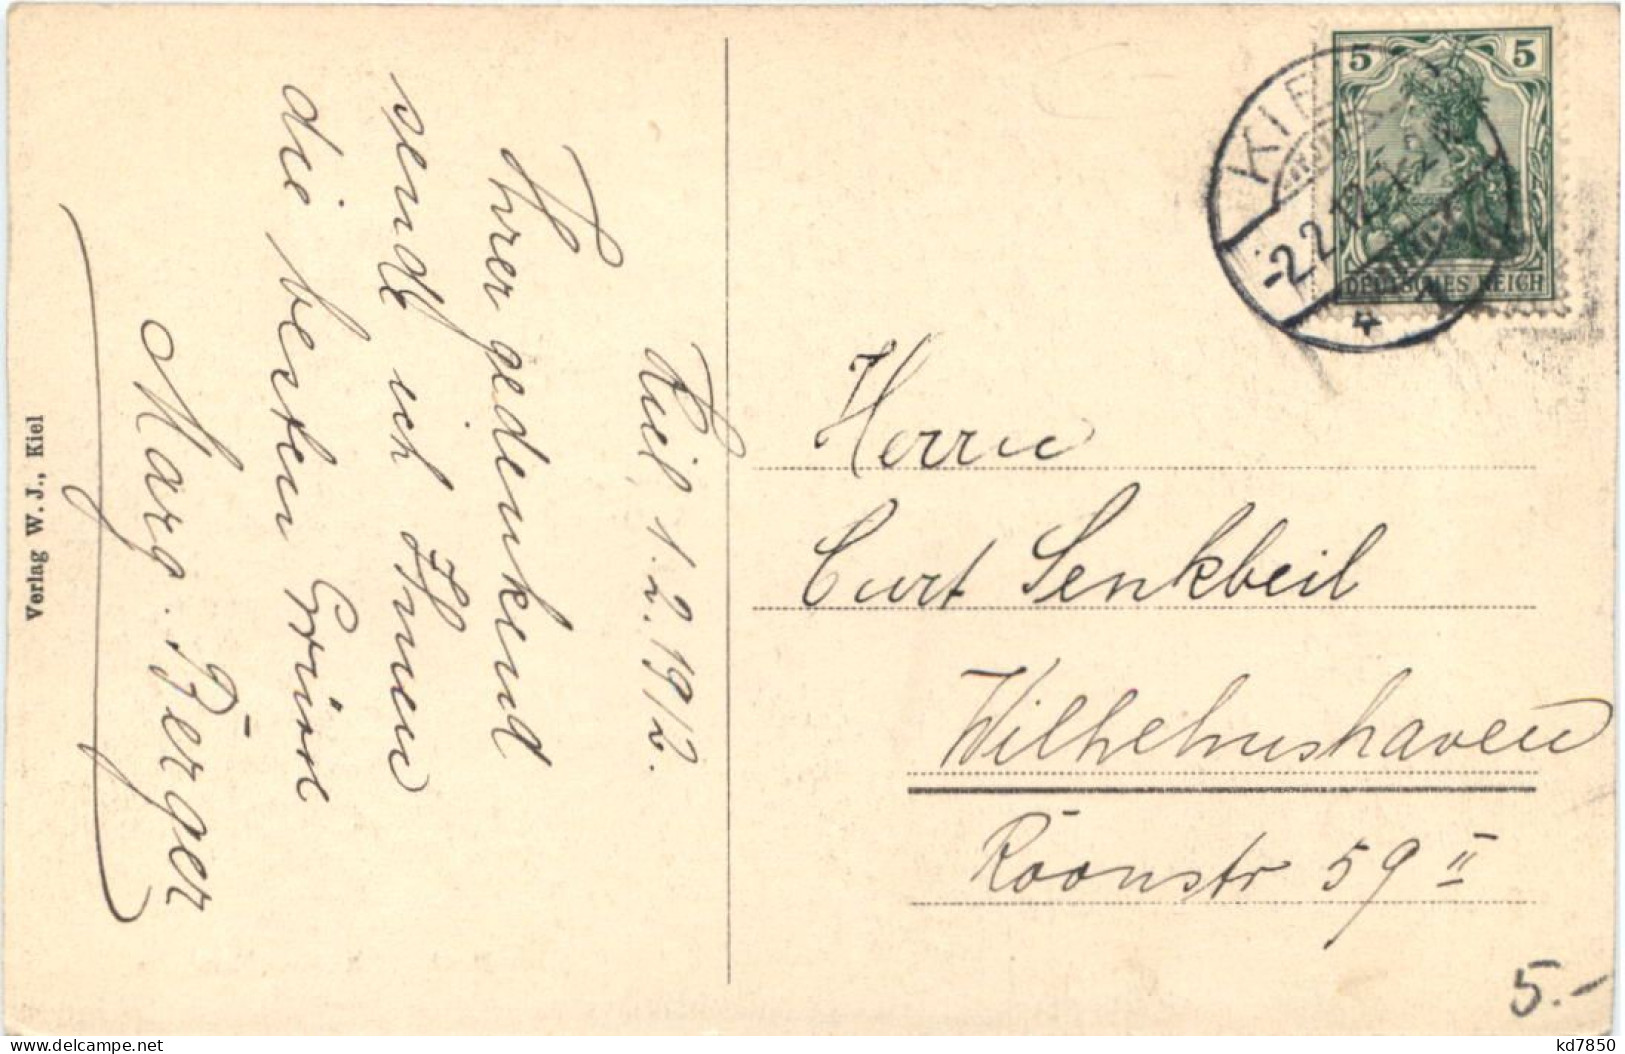 Kiel, 1.2.1912.
Ihrer gedenkend
sende ich Ihnen
die besten Grüße
Marg. Berger
Verlag W. J., Kiel
5 5
DEUTSCHES REICH
KIEL
-2.2.12.
* 1
Herrn
Curt Senkbeil
Wilhelmshaven
Roonstr 59 II
5.-
www.delcampe.net
kd7850